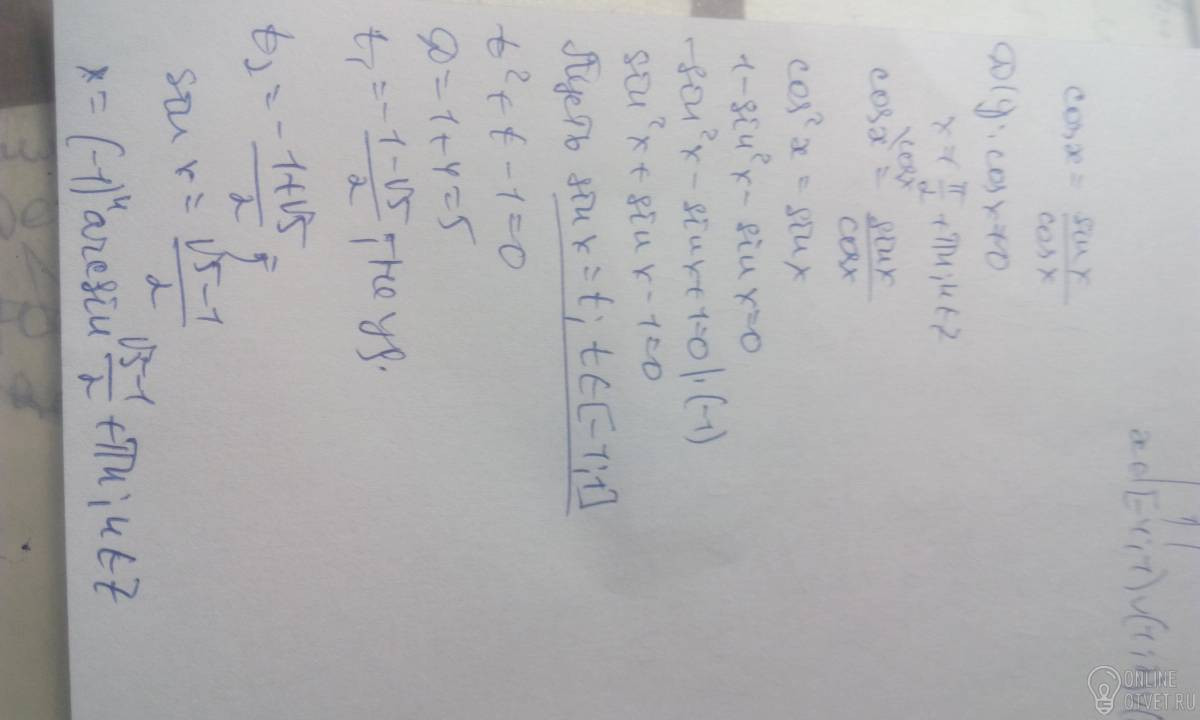 cos x = sin x / cos x
ОДЗ: cos x ≠ 0
x ≠ π/2 + πn, n ∈ Z
cos x \cos x = sin x / cos x
cos² x = sin x
1 - sin² x - sin x = 0
-sin² x - sin x + 1 = 0 | · (-1)
sin² x + sin x - 1 = 0
Пусть sin x = t, t ∈ [-1; 1]
t² + t - 1 = 0
D = 1 + 4 = 5
t₁ = (-1 - √5) / 2,
t₂ = (-1 + √5) / 2;
sin x = (√5 - 1) / 2
x = (-1)ⁿ arcsin (√5 - 1) / 2 + πn, n ∈ Z
ONLINE
OTVET.RU